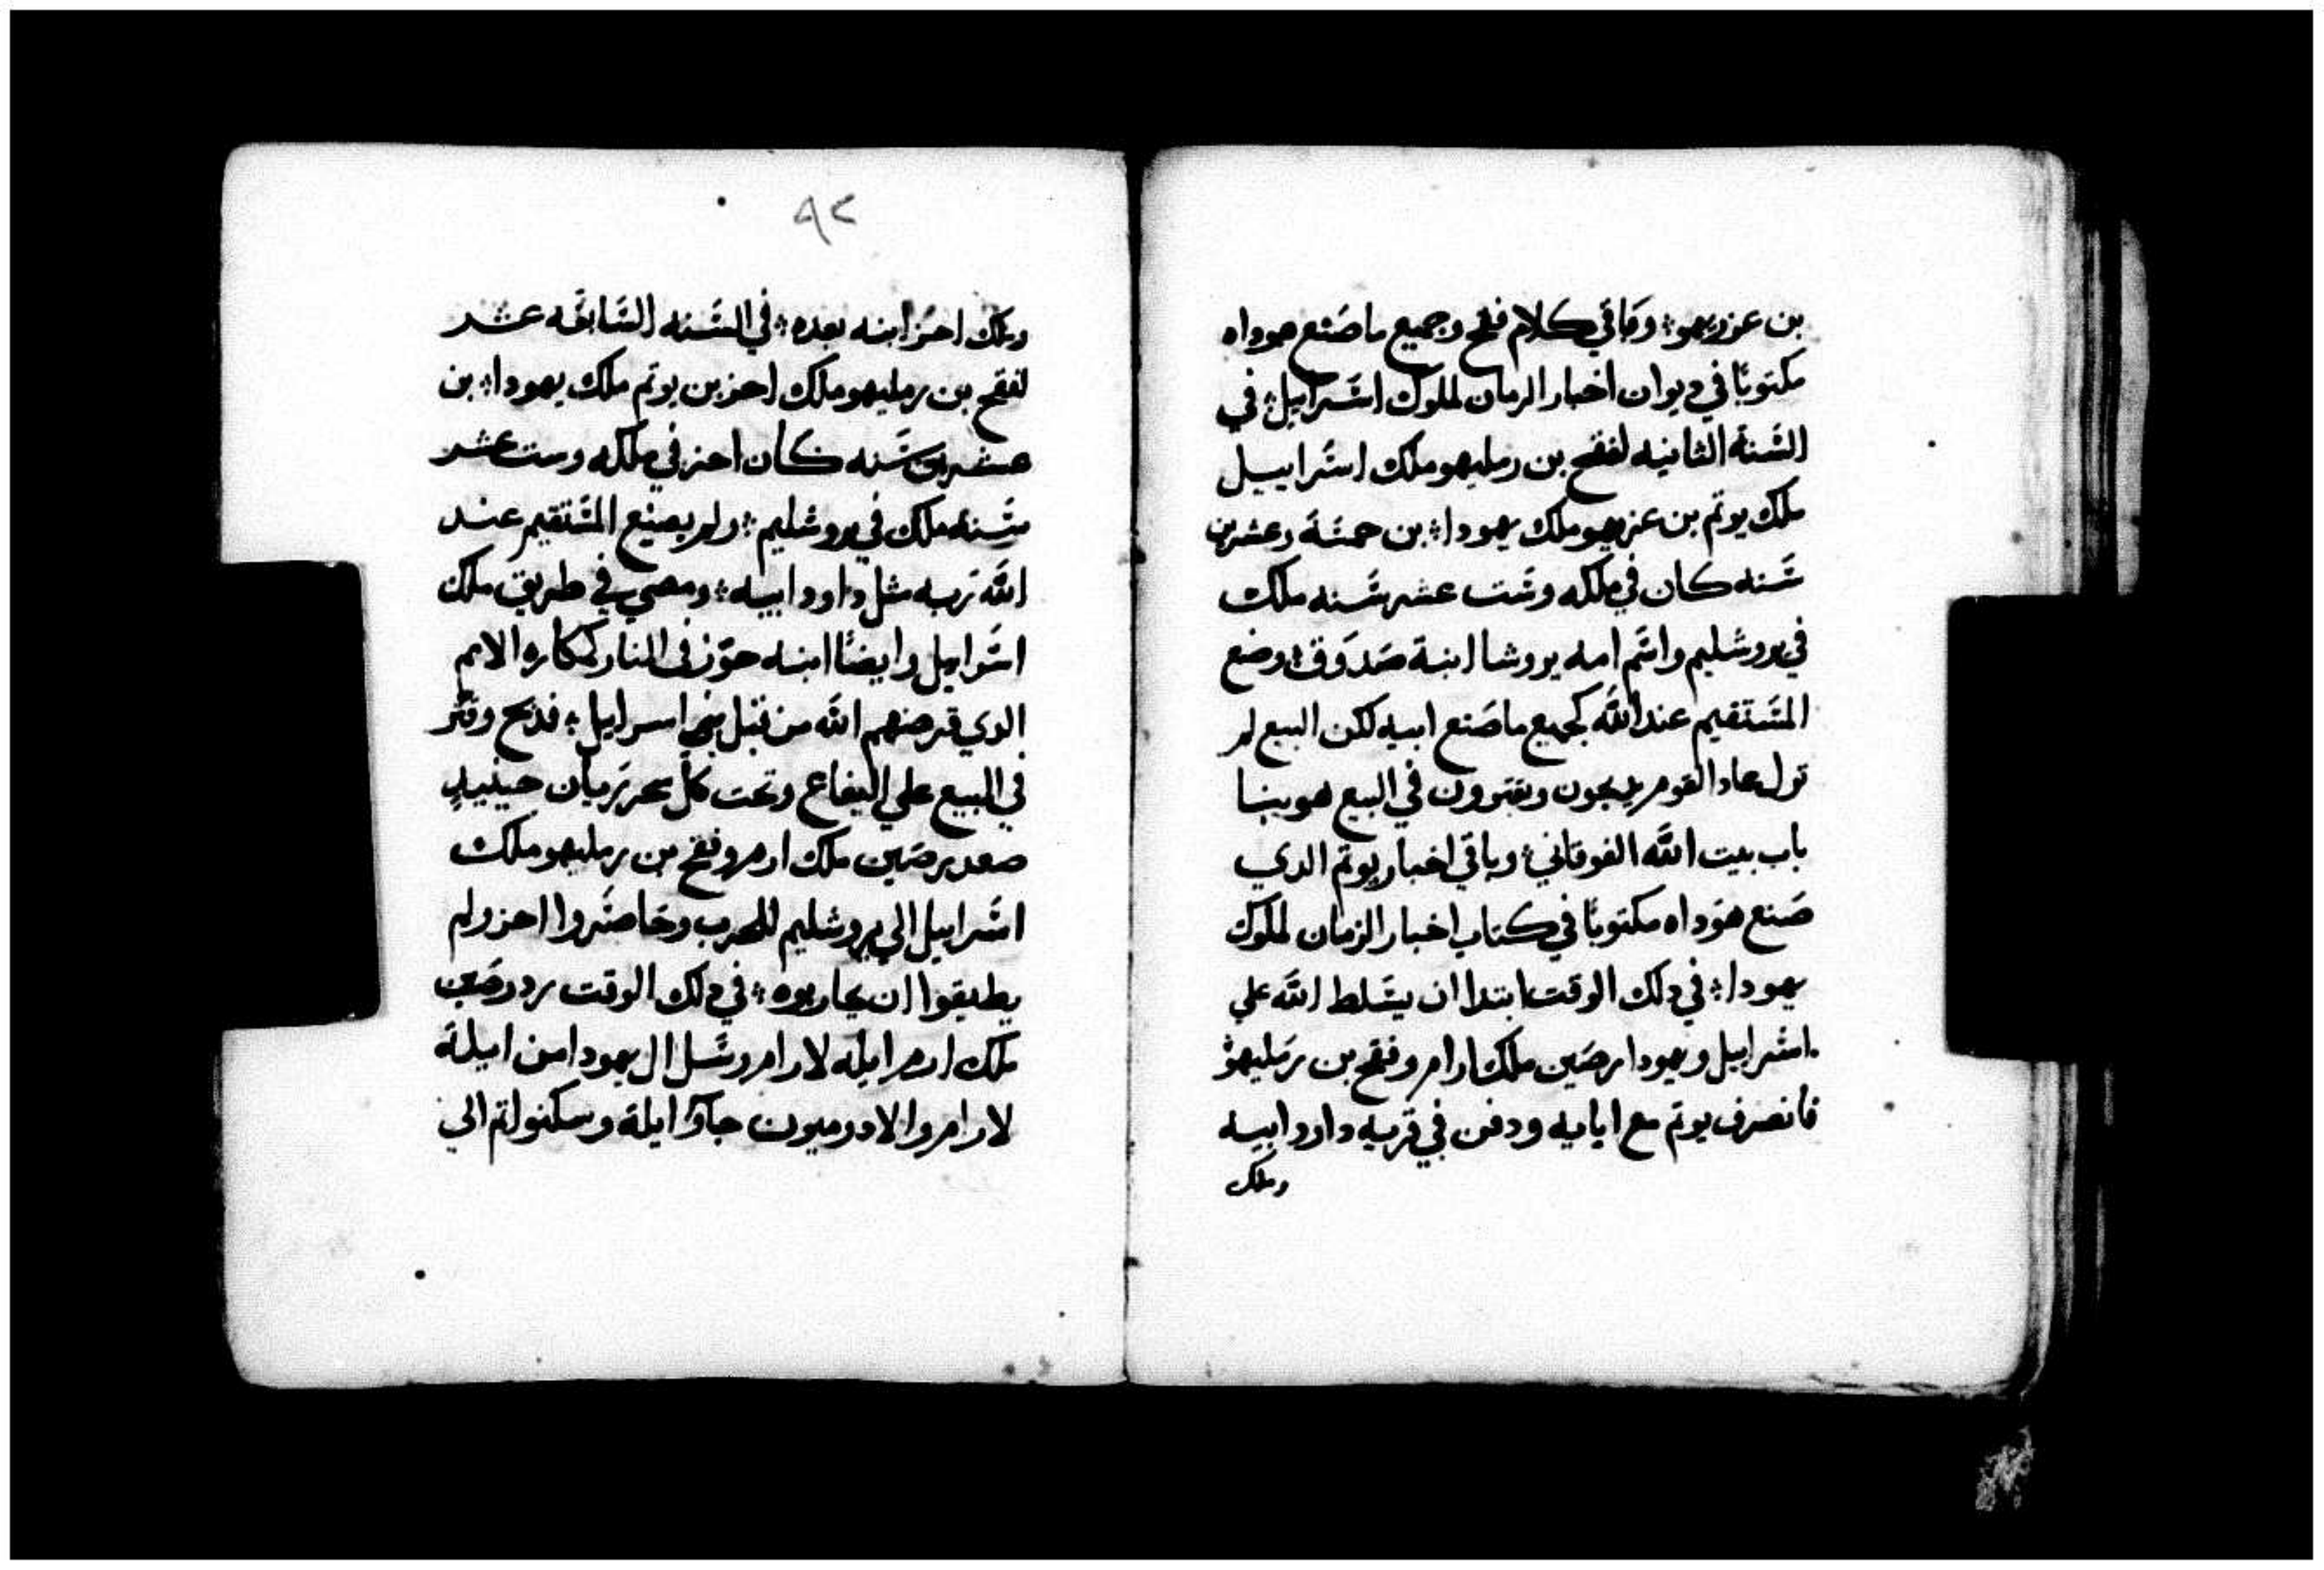 بن عزريهو؛ وباقي كلام فقح وجميع ما صنع هوداه
مكتوبًا في ديوان اخبار الزمان لملوك اسرايل؛ في
السنة الثانيه لفقح بن رمليهو ملك اسراييل
ملك يوتم بن عزيهو ملك يهودا؛ بن خمسة وعشرين
سنه كان في ملكه وست عشر سنه ملك
في يروشليم واسم امه يروشا ابنة صدوق؛ وصنع
المستقيم عند الله كجميع ما صنع ابيه لكن البيع لم
تزل عاد القوم يدبحون ويقترون في البيع هو بنا
باب بيت الله الفوقاني؛ وباقي اخبار يوتم الدي
صنع هوداه مكتوبًا في كتاب اخبار الزمان لملوك
يهودا؛ في دلك الوقت ابتدا ان يسلط الله علي
اسراييل ويهودا رصين ملك ارام وفقح بن رمليهو
فانصرف يوتم مع ابايه ودفن في قريه داود ابيه
وملك
٩٢
وملك احز ابنه بعده؛ في السنه السابعه عشر
لفقح بن رمليهو ملك احز بن يوتم ملك يهودا؛ بن
عشرين سنه كان احز في ملكه وست عشر
سنه ملك في يروشليم؛ ولم يصنع المستقيم عند
الله ربه مثل داود ابيه؛ ومضي في طريق ملك
اسرايل وايضًا ابنه جوز في النار كمكاره الامم
الدي قرضهم الله من قبل بني اسرايل؛ فدبح وقتر
في البيع علي اليفاع وتحت كل شجر ريان حينيدٍ
صعد رصين ملك ارم وفقح بن رمليهو ملك
اسراييل الي يروشليم للحرب وحاصروا احز ولم
يطيقوا ان يحاربوه؛ في دلك الوقت رد رصين
ملك ارم ايله لارام وسل ال يهودا من ايلة
لارام والادوميون جاوا ايلة وسكنوا تم الي